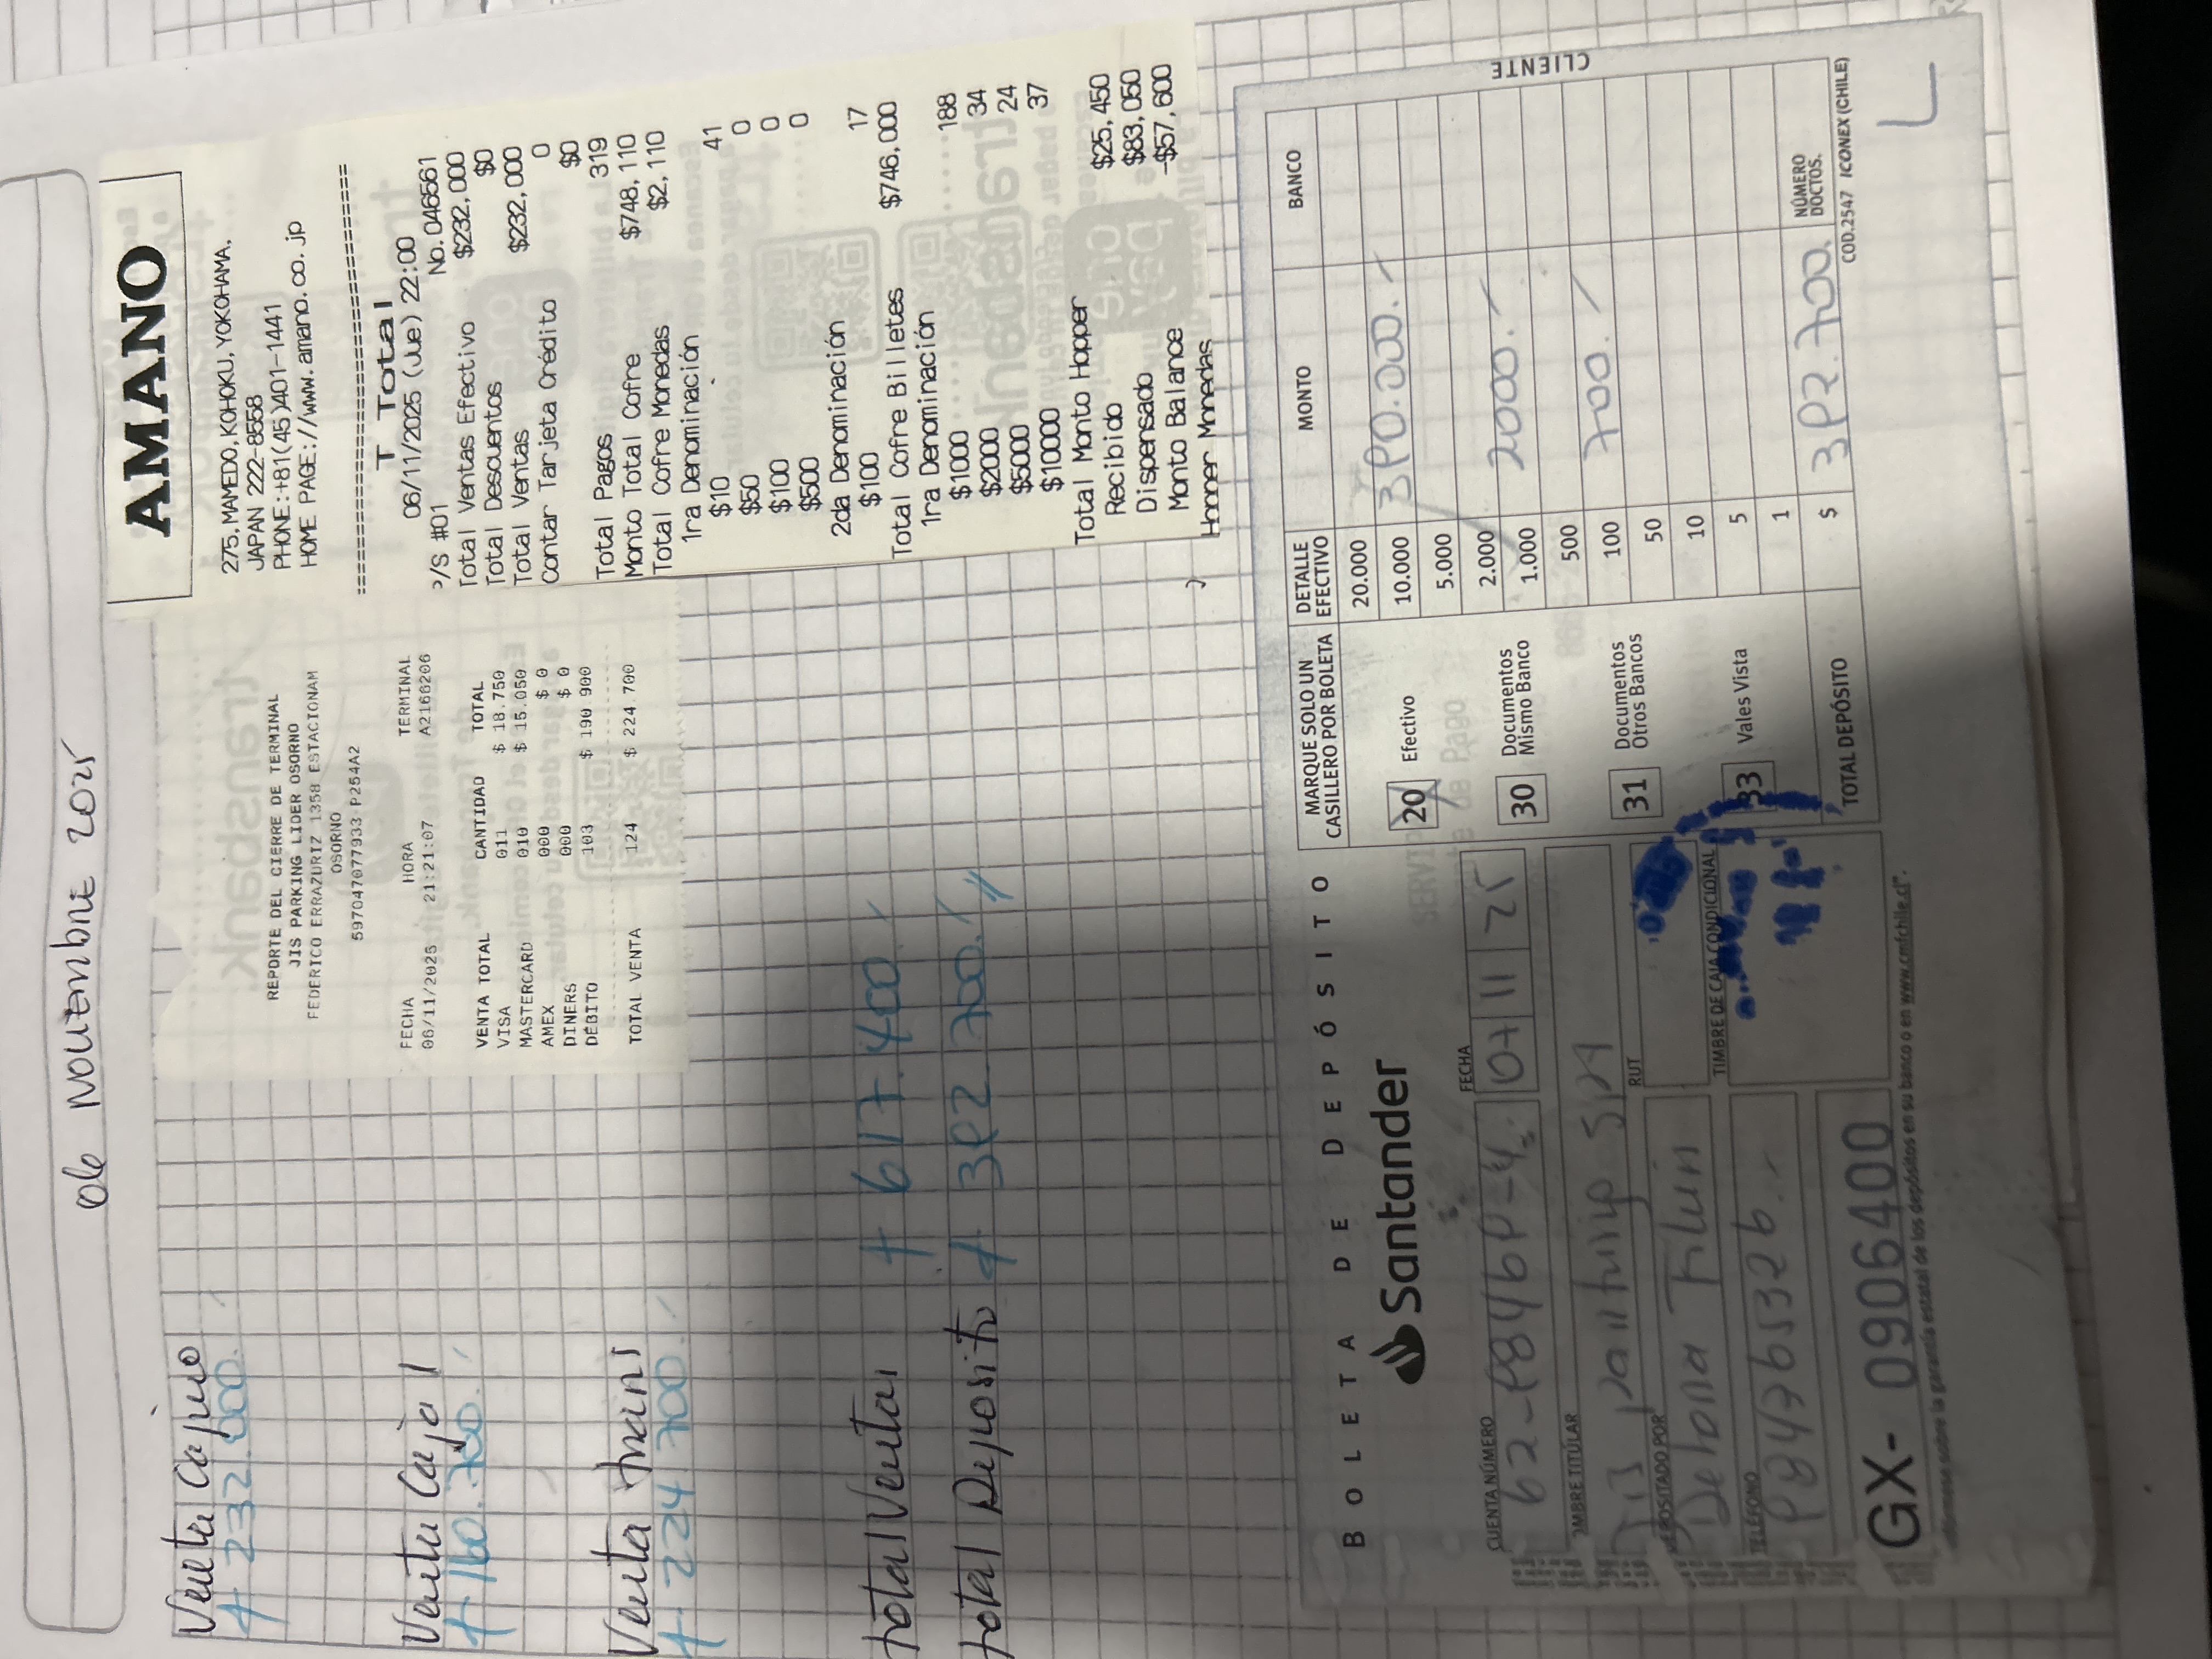 06 Noviembre 2025
Venta Cajero
$ 232.000.
Venta Caja 1
$ 160.700.
Venta Trans
$ 224.700.
total Ventas $ 617.400.
total Deposito $ 392.700.
REPORTE DEL CIERRE DE TERMINAL
JIS PARKING LIDER OSORNO
FEDERICO ERRAZURIZ 1358 ESTACIONAM
OSORNO
597047077933 P254A2
FECHA HORA TERMINAL
06/11/2025 21:21:07 A2166206
VENTA TOTAL CANTIDAD TOTAL
VISA 011 $ 18.750
MASTERCARD 010 $ 15.050
AMEX 000 $ 0
DINERS 000 $ 0
DÉBITO 103 $ 190 900
TOTAL VENTA 124 $ 224.700
AMANO
275, MAMEDO, KOHOKU, YOKOHAMA,
JAPAN 222-8558
PHONE:+81(45)401-1441
HOME PAGE://www.amano.co.jp
==============================
T Total
06/11/2025 (Jue) 22:00
P/S #01 No.046561
Total Ventas Efectivo $232,000
Total Descuentos $0
Total Ventas $232,000
Contar Tarjeta Crédito 0
$0
Total Pagos 319
Monto Total Cofre $748,110
Total Cofre Monedas $2,110
1ra Denominación
$10 41
$50 0
$100 0
$500 0
2da Denominación
$100 17
Total Cofre Billetes $746,000
1ra Denominación
$1000 188
$2000 34
$5000 24
$10000 37
Total Monto Hopper
Recibido $25,450
Dispensado $83,050
Monto Balance -$57,600
Hopper Monedas
BOLETA DE DEPÓSITO
Santander
CUENTA NÚMERO FECHA
07 11 25
JIS Parking SPA
DEPOSITADO POR RUT
TELÉFONO
984765326.
TIMBRE DE CAJA CONDICIONAL
GX- 0906400
MARQUE SOLO UN
CASILLERO POR BOLETA
20 Efectivo
30 Documentos
Mismo Banco
31 Documentos
Otros Bancos
33 Vales Vista
DETALLE
EFECTIVO MONTO BANCO
20.000
10.000 390.000.
5.000
2.000
1.000 2000.
500
100 700.
50
10
5
1
TOTAL DEPÓSITO $ 392.700. NÚMERO
DOCTOS.
COD.2547 ICONEX (CHILE)
CLIENTE
sobre la garantía estatal de los depósitos en su banco o en www.cmfchile.cl".